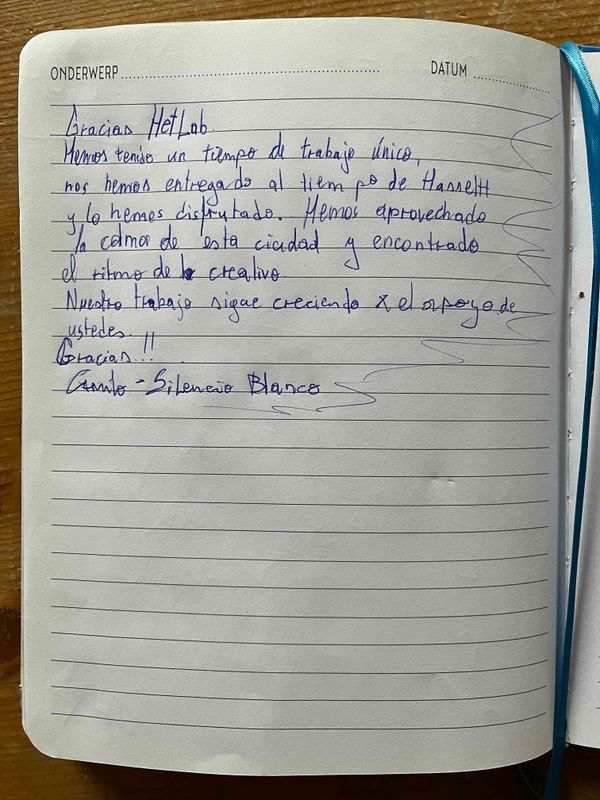 ONDERWERP DATUM
Gracias HetLab.
Hemos tenido un tiempo de trabajo único,
nos hemos entregado al tiempo de Hasselt
y lo hemos disfrutado. Hemos aprovechado
la calma de esta ciudad y encontrado
el ritmo de lo creativo.
Nuestro trabajo sigue creciendo x el apoyo de
ustedes.
Gracias!!
Camilo - Silencio Blanco